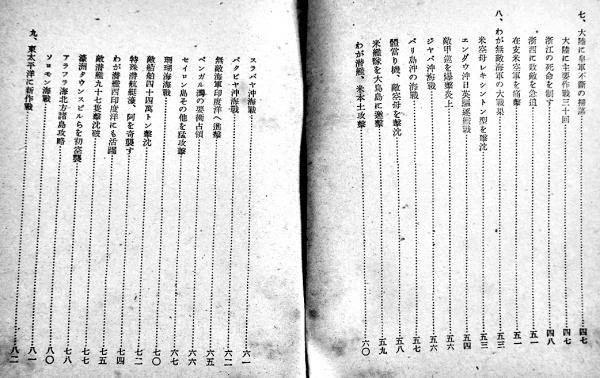 七、大陸に皇軍不断の掃蕩……四七
大陸に主要作戦三十回……四七
浙江の死命を制す……四八
浙西に敗敵を急追……五一
在支米空軍を痛撃……五一
八、わが無敵海軍の大戰果……五三
米空母レキシントン型を撃沈……五三
エンダウ沖日英驅逐艦戰……五四
敵甲巡を爆撃炎上……五六
ジャバ沖海戰……五六
バリ島沖の海戰……五七
體當り機、敵空母を撃沈……五八
米艦隊を大鳥島に邀撃……五九
わが潜艦、米本土攻撃……六〇
スラバヤ沖海戰……六一
バタビヤ沖海戰……六二
無敵海軍印度洋へ進撃……六五
ベンガル灣の要衝占領……六六
セイロン島その他を猛攻撃……六七
珊瑚海海戰……七〇
敵船舶四十四萬トン撃沈……七二
特殊潜航艇濠、阿を奇襲す……七四
わが潜艦西印度洋にも活躍……七五
敵潜艦九十七隻撃沈破……七七
濠洲タウンスビルらを初空襲……七七
アラフラ海北方諸島攻略……七八
ソロモン海戰……八〇
九、東太平洋に新作戰……八一
……八二